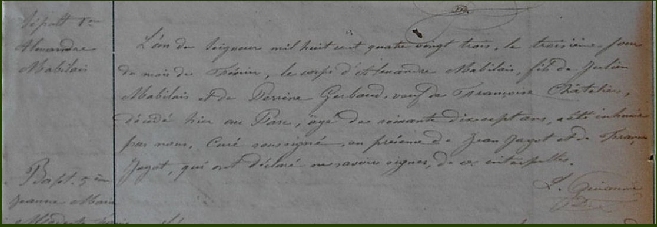 Sépult. 1re
Alexandre
Mabilais
L'an du Seigneur mil huit cent quatre vingt trois, le troisième jour
du mois de Février, le corps d'Alexandre Mabilais, fils de Julien
Mabilais et de Perrine Gerbaud, veuf de Françoise Châtelier,
décédé hier au Parc, âgé de soixante dix sept ans, a été inhumé
par nous, Curé soussigné, en présence de Jean Jagot et de François
Jagot, qui ont déclaré ne savoir signer, de ce interpellés.
Bapt.
Jeanne Marie